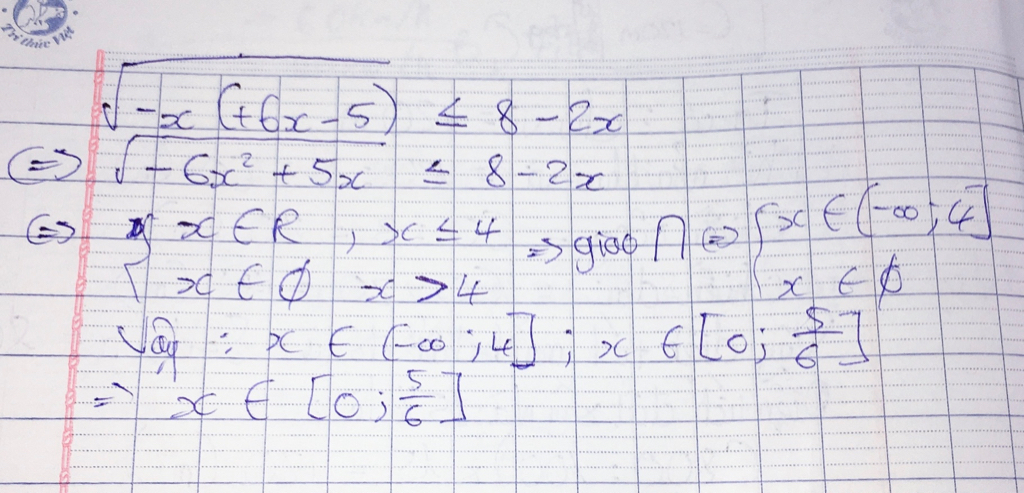 Trí thức Việt
√(-x(+6x-5)) ≤ 8-2x
⇔ √(-6x²+5x) ≤ 8-2x
⇔ { x ∈ R , x ≤ 4 => giao ∩ ⇔ { x ∈ (-∞;4]
x ∈ ∅ x > 4 x ∈ ∅
Vậy : x ∈ (-∞;4] ; x ∈ [0; 5/6]
=> x ∈ [0; 5/6]